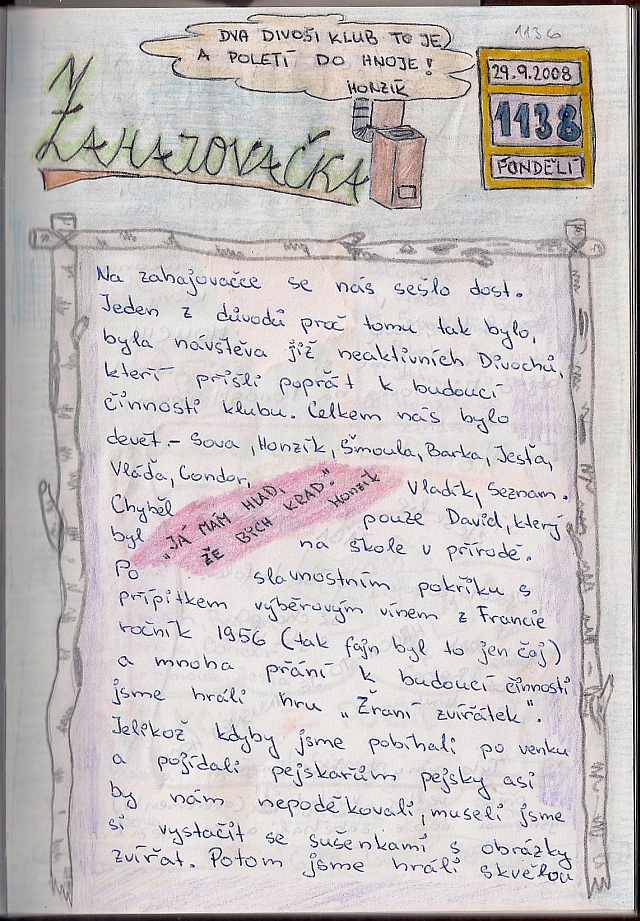 1136
DVA DIVOŠI KLUB TO JE
A POLETÍ DO HNOJE!
HONZÍK
29.9.2008
1138
PONDĚLÍ
ZAHAJOVAČKA
Na zahajovačce se nás sešlo dost.
Jeden z důvodů proč tomu tak bylo,
byla návštěva již neaktivních Divochů,
kteří přišli popřát k budoucí
činnosti klubu. Celkem nás bylo
devět - Sova, Honzík, Šmoula, Barka, Jesťa,
Vláďa, Condor, Vladík, Seznam.
Chyběl pouze David, který
byl na škole v přírodě.
„JÁ MÁM HLAD,
ŽE BYCH KRAD." Honzík
Po slavnostním pokřiku s
přípitkem výběrovým vínem z Francie
ročník 1956 (tak fajn byl to jen čaj)
a mnoha přání k budoucí činnosti
jsme hráli hru „Žraní zvířátek".
Jelikož kdyby jsme pobíhali po venku
a pojídali pejskařům pejsky asi
by nám nepoděkovali, museli jsme
si vystačit se sušenkami s obrázky
zvířat. Potom jsme hráli skvělou